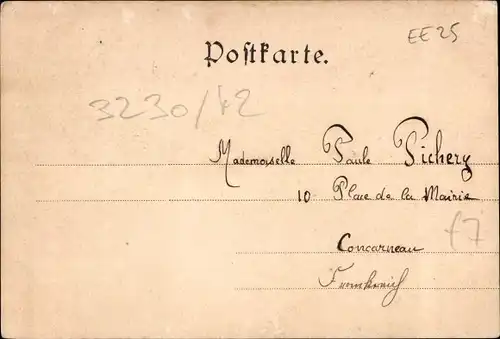 EE25
Postkarte.
3230/42
Mademoiselle Paule Pichery
10 Place de la Mairie
f7
Concarneau
Frankreich